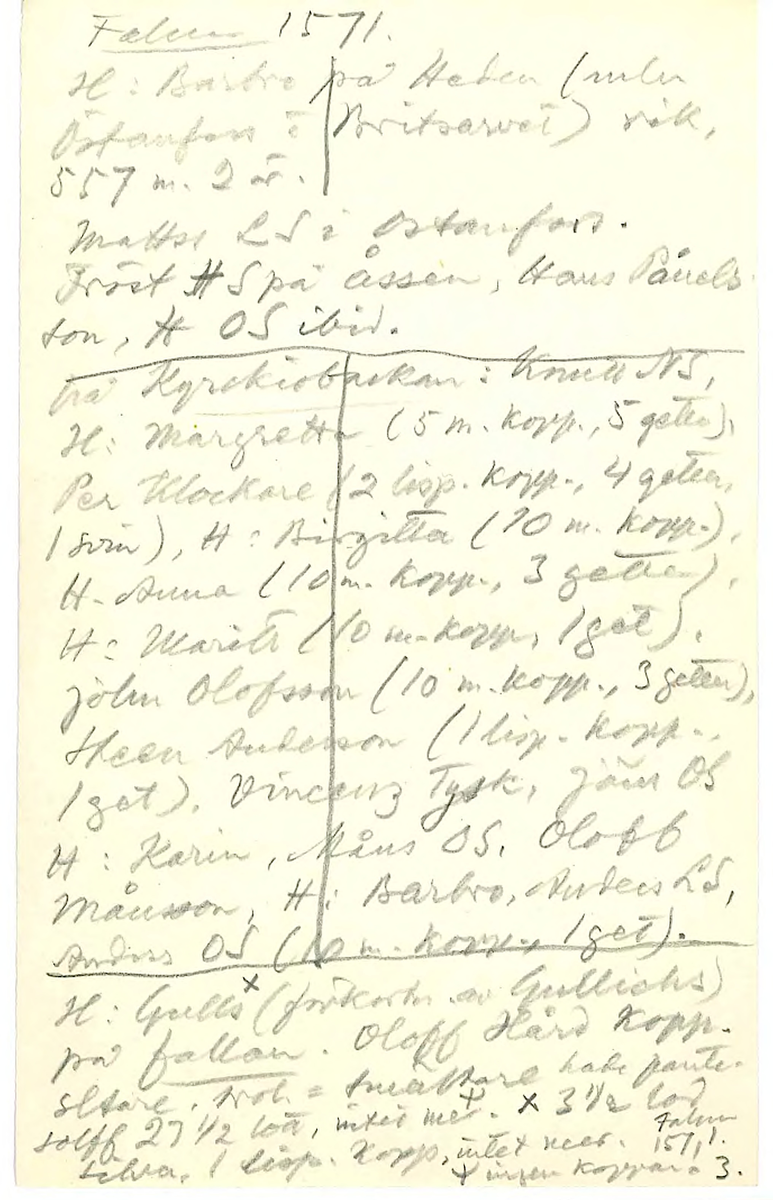 Falun 1571.
H: Barbro på Heden (
Östanfors i Britsarvet) rik,
557 m. 2 ör.
Matts LS i Östanfors.
Tröst HS på åssen, Hans Påvels
son, H OS ibid.
på Kyrckiobackan: Knut NS,
H: Margretta (5 m. kopp., 5 getter),
Per Klockare (2 lisp. kopp., 4 getter,
1 svin), H: Birgitta (10 m. kopp.),
H. Anna (10 m. kopp., 3 getter),
H: Maritt (10 m. kopp, 1 get).
jöhn Olofsson (10 m. kopp., 3 getter),
Steen Andersson (1 lisp. kopp.,
1 get), Vincenz Tysk, jöns OS
H: Karin, Måns OS, Oloff
Månsson, H: Barbro, Anders LS,
Anders OS (10 m. kopp., 1 get).
H: Gulls x (förkortn. av Gullichs)
på fallan. Oloff Hård Kopp.
sltare, trol. = smältare hade
solff 27 1/2 lod, intet mer. x 3 1/2 lod
1 lisp. Kopp, intet meer. Falun 1571.
+ ingen koppar. 3.